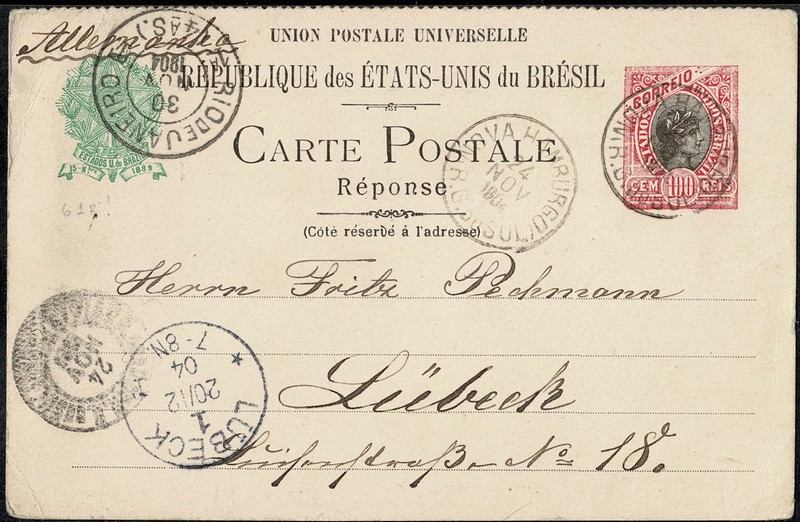 Allemanha
UNION POSTALE UNIVERSELLE
RÉPUBLIQUE des ÉTATS-UNIS du BRÉSIL
CARTE POSTALE
Réponse
(Côté réservé á l'adresse)
ESTADOS U. do BRAZIL
15-Nbro 1889
RIO DE JANEIRO
30
NOV
1904
NOVA HAMBURGO
24
NOV
R.G. DO SUL
CORREIO
ESTADOS UNIDOS BRAZIL
CEM 100 REIS
Herrn Fritz Pechmann
Lübeck
Luisenstraße No 18.
24
NOV
LÜBECK
1
20/12
04
7-8N